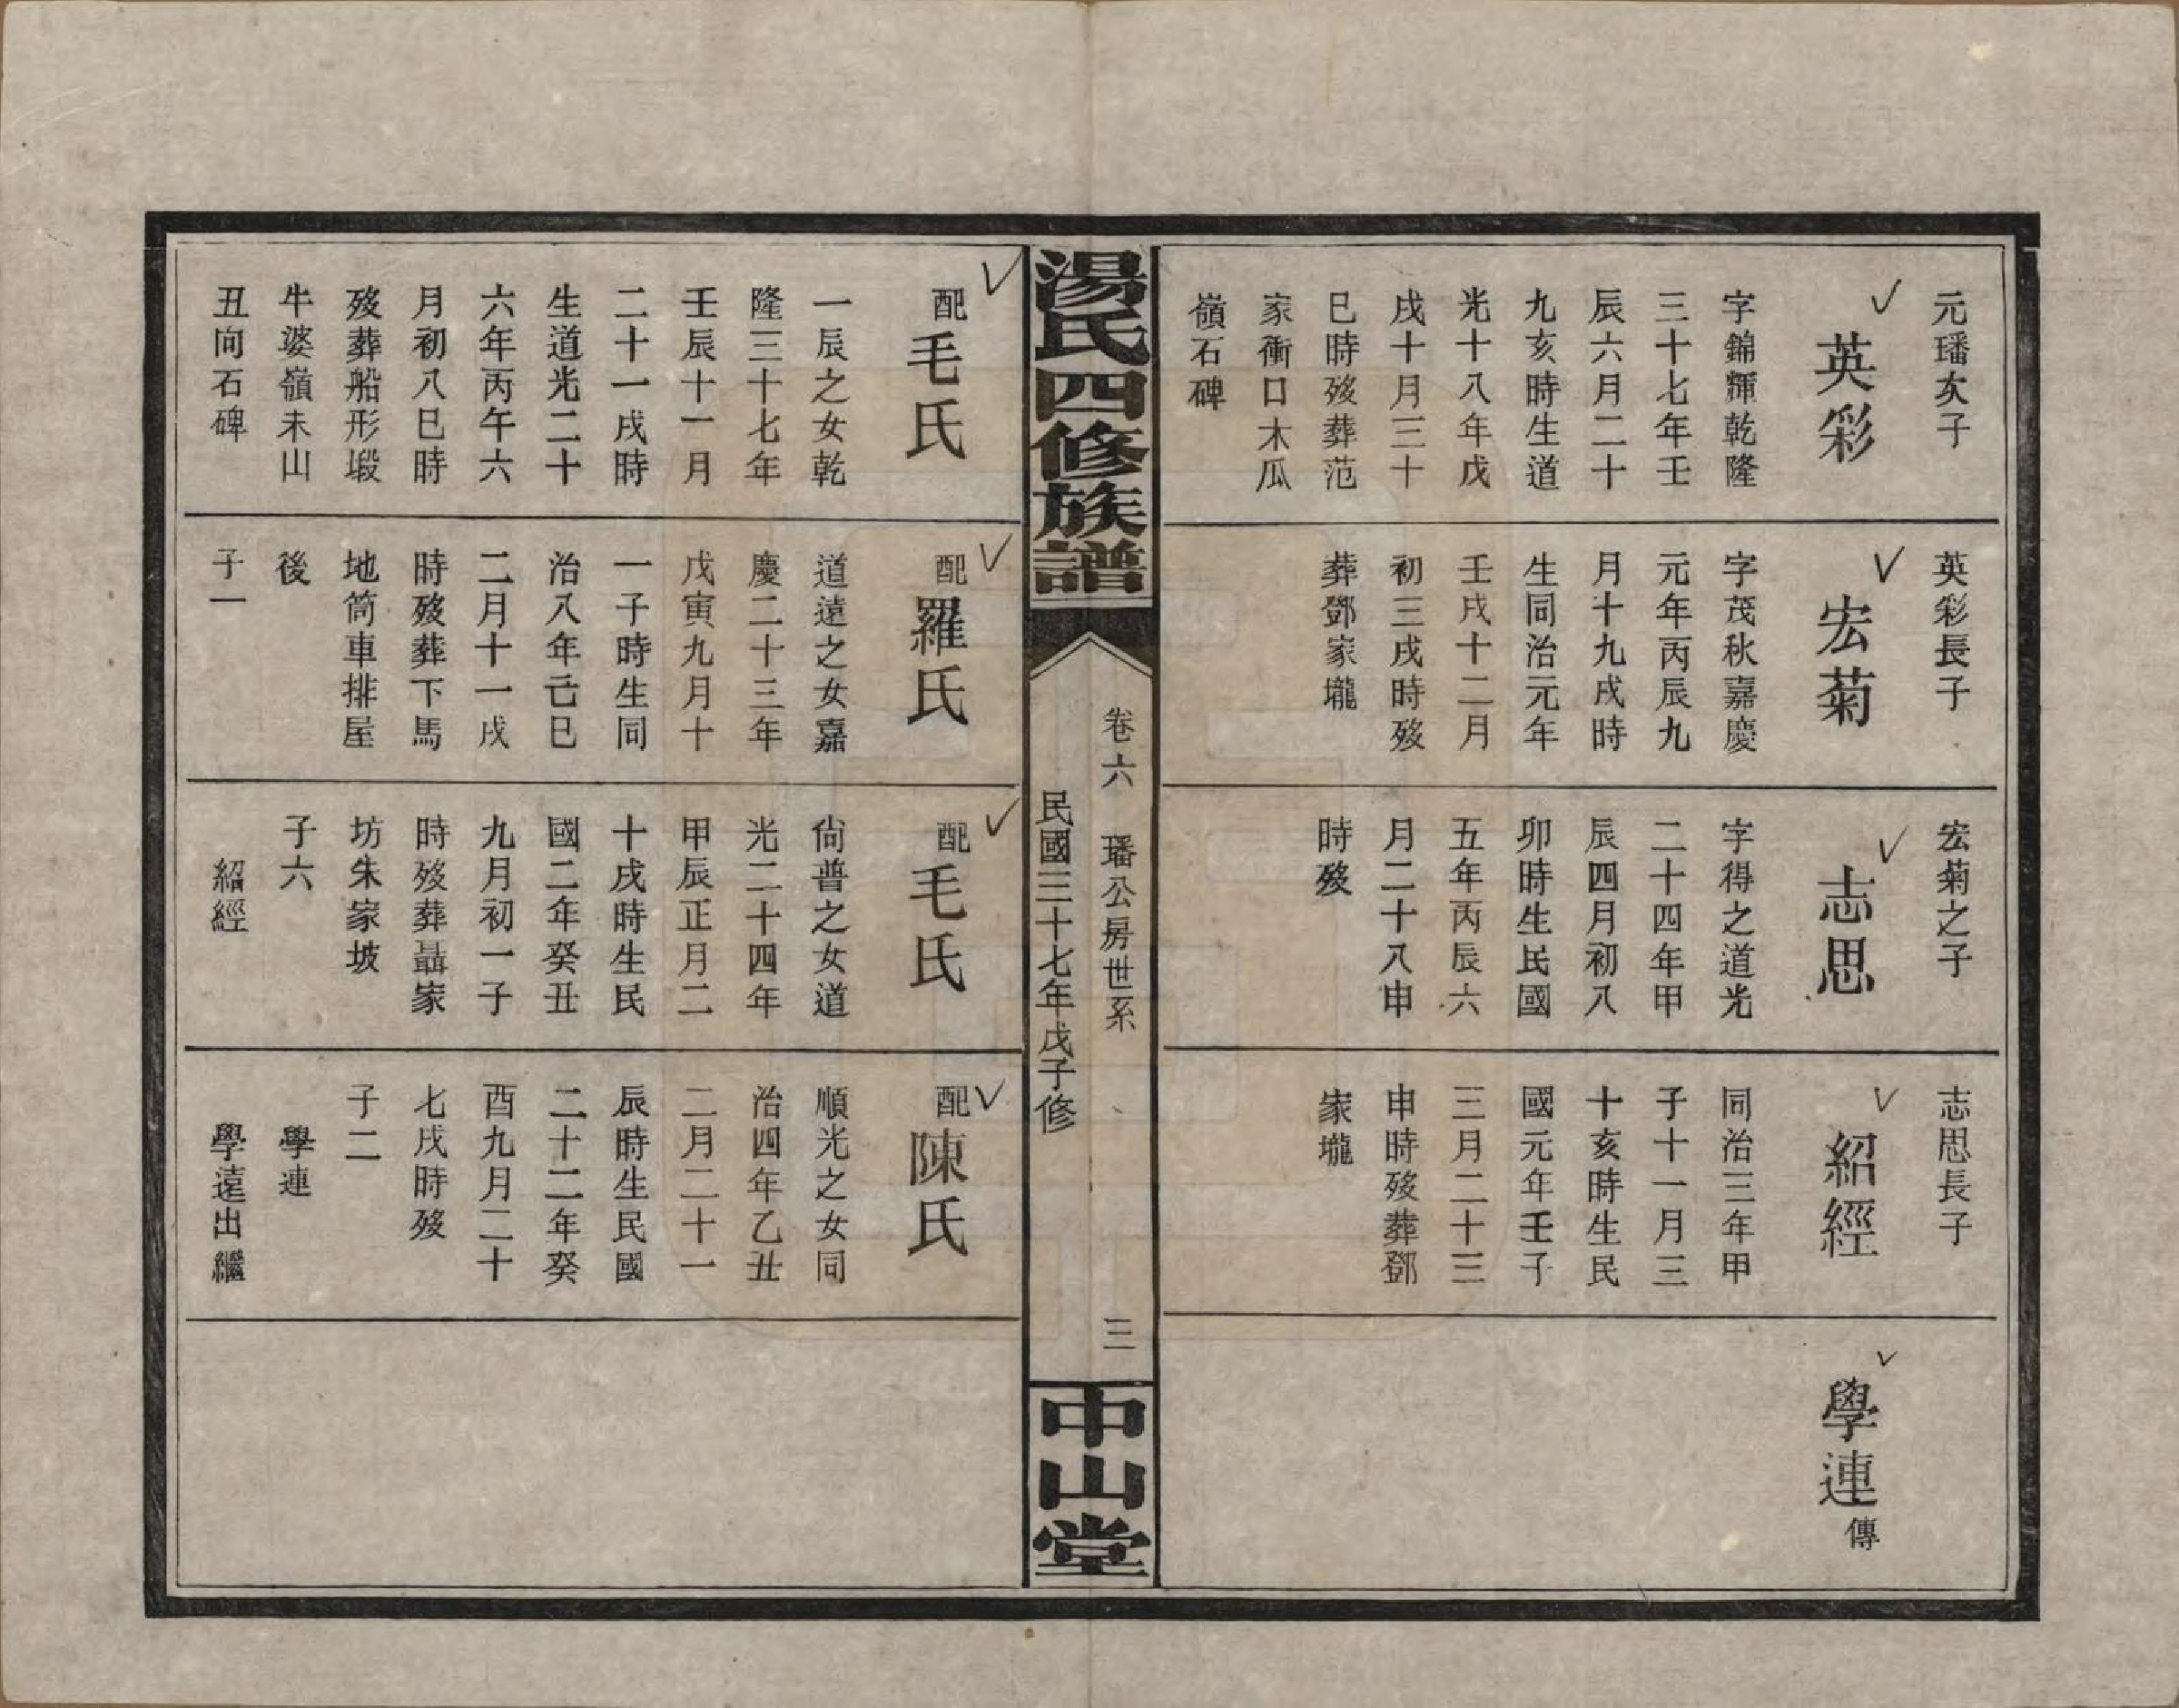 元璠次子
英彩
字錦輝乾隆
三十七年壬
辰六月二十
九亥時生道
光十八年戊
戌十月三十
巳時歿葬范
家衝口木瓜
嶺石碑
英彩長子
宏菊
字茂秋嘉慶
元年丙辰九
月十九戌時
生同治元年
壬戌十二月
初三戌時歿
葬鄧家壠
宏菊之子
志思
字得之道光
二十四年甲
辰四月初八
卯時生民國
五年丙辰六
月二十八申
時歿
志思長子
紹經
同治三年甲
子十一月三
十亥時生民
國元年壬子
三月二十三
申時歿葬鄧
家壠
學連傳
湯氏四修族譜
卷六 璠公房世系 三
民國三十七年戊子修
中山堂
配毛氏
一辰之女乾
隆三十七年
壬辰十一月
二十一戌時
生道光二十
六年丙午六
月初八巳時
歿葬船形塅
牛婆嶺未山
丑向石碑
配羅氏
道遠之女嘉
慶二十三年
戊寅九月十
一子時生同
治八年己巳
二月十一戌
時歿葬下馬
地筒車排屋
後
子一
配毛氏
尙普之女道
光二十四年
甲辰正月二
十戌時生民
國二年癸丑
九月初一子
時歿葬聶家
坊朱家坡
子六
紹經
配陳氏
順光之女同
治四年乙丑
二月二十一
辰時生民國
二十二年癸
酉九月二十
七戌時歿
子二
學連
學遠出繼